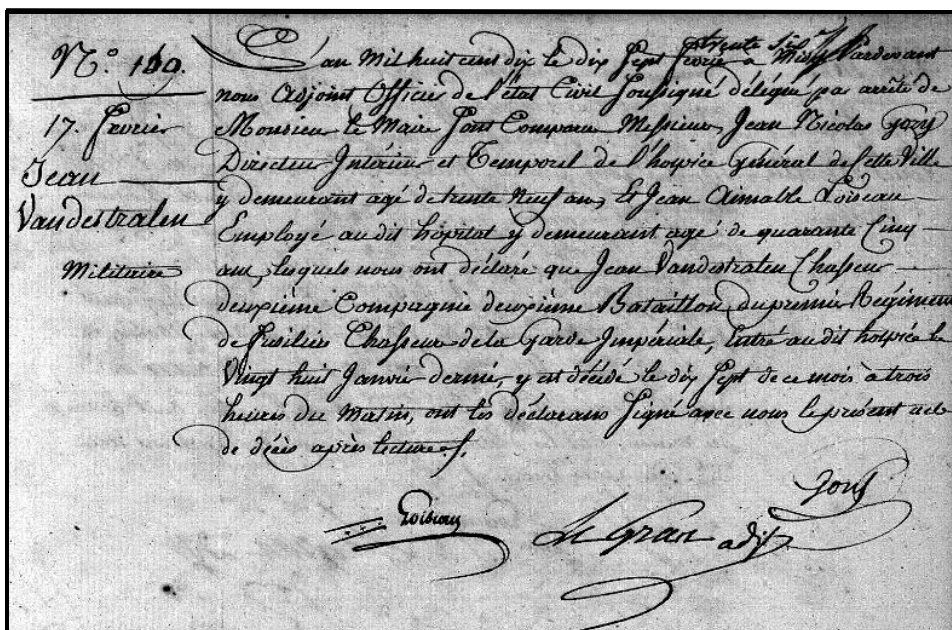 N.º 160.
17. fevrier
Jean
Vandestralen
Militaire
L'an Mil huit cent dix le dix Sept fevrier a Midy trente Pardevant
nous Adjoint Officier de l'état Civil Soussigné délégué par arrêté de
Monsieur le Maire Sont Comparu Messieurs Jean Nicolas Gory
Directeur Intérieur et Temporel de l'hospice Général de Cette Ville
y demeurant agé de trente Neuf ans, Et Jean Aimable Loiseau
Employé au dit hôpital y demeurant agé de quarante Cinq
ans, lesquels nous ont déclaré que Jean Vandestralen Chasseur
deuxième Compagnie deuxième Bataillon du premier Régiment
de fusiliers Chasseur de la Garde Impériale, Entré au dit hospice le
Vingt huit Janvier dernier, y est décédé le dix Sept de ce mois à trois
heures du Matin, ont les déclarans Signé avec nous le présent acte
de décès après lecture
Loiseau
Le Gran adjt
Gory